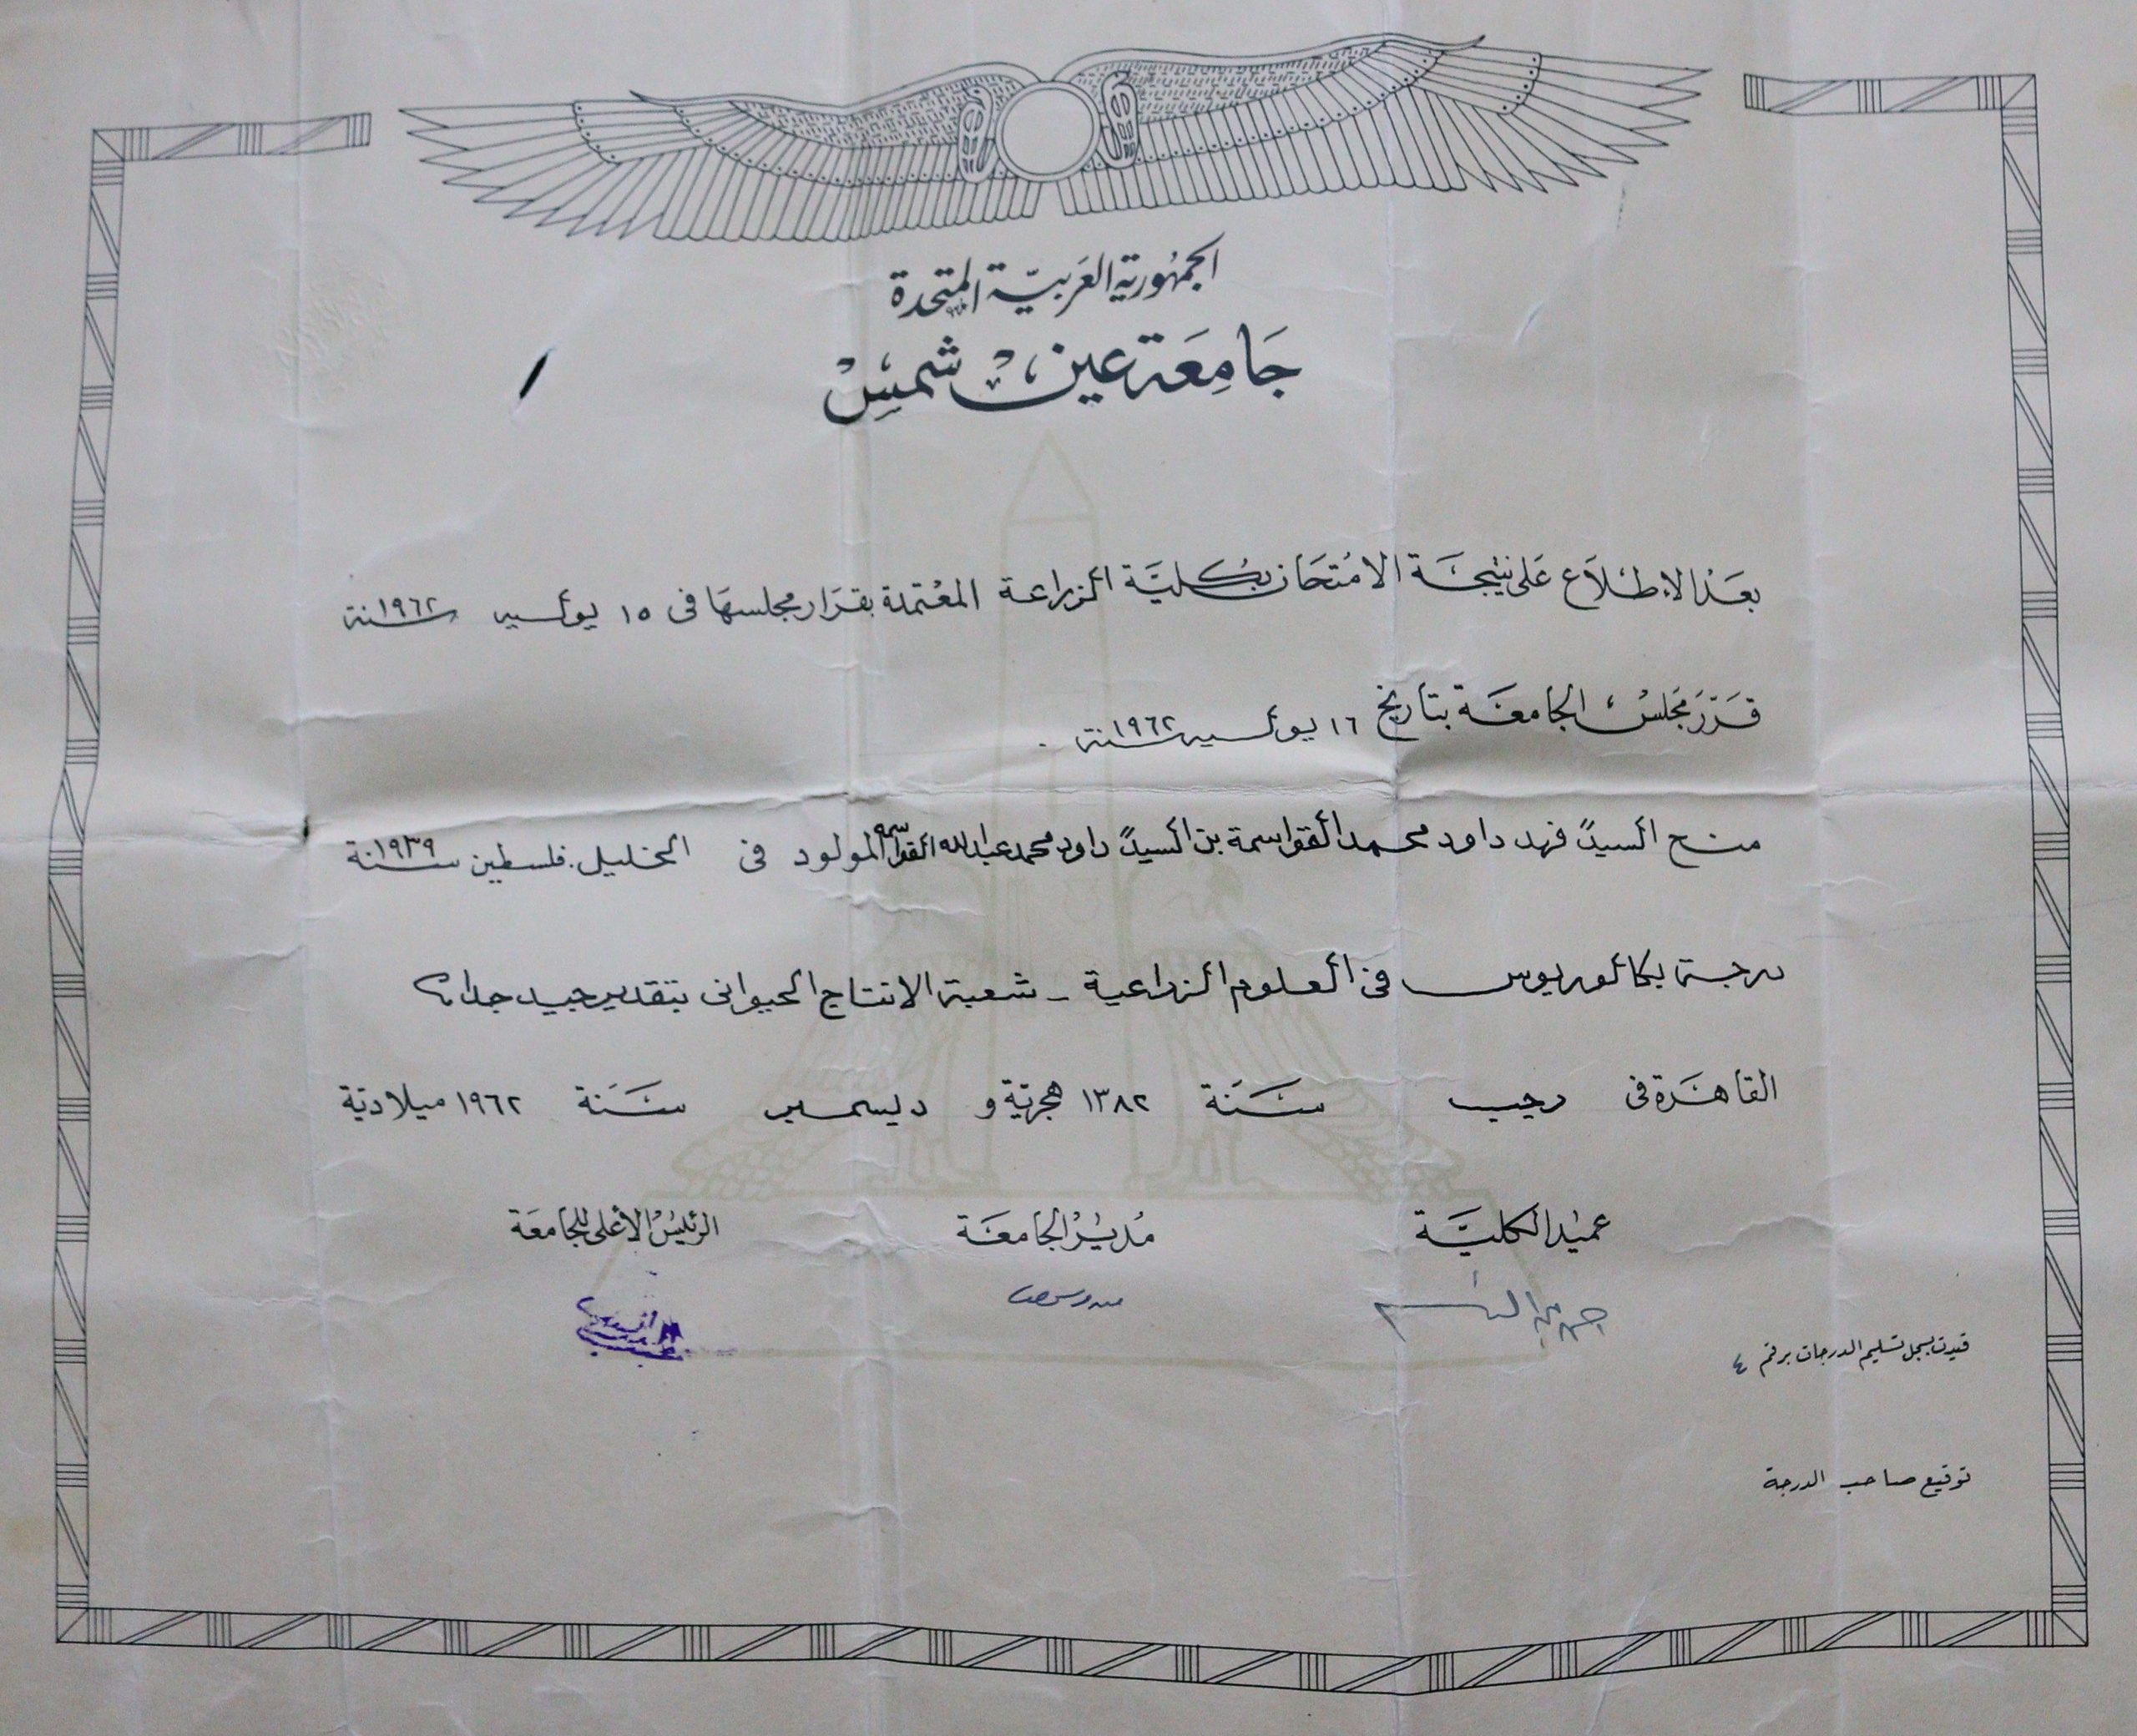 الجمهورية العربية المتحدة
جامعة عين شمس
بعد الاطلاع على نتيجة الامتحان بكلية الزراعة المعتمدة بقرار مجلسها في ١٥ يوليه سنة ١٩٦٢
قرر مجلس الجامعة بتاريخ ١٦ يوليه سنة ١٩٦٢ .
منح السيد فهد داود محمد القواسمة بن السيد داود محمد عبدالله القواسمه المولود في الخليل . فلسطين سنة ١٩٣٩
درجة بكالوريوس في العلوم الزراعية - شعبة الانتاج الحيواني بتقدير جيد جدا
القاهرة في رجب سنة ١٣٨٢ هجرية و ديسمبر سنة ١٩٦٢ ميلادية
عميد الكلية مدير الجامعة الرئيس الأعلى للجامعة
قيدت بسجل تسليم الدرجات برقم ٤
توقيع صاحب الدرجة